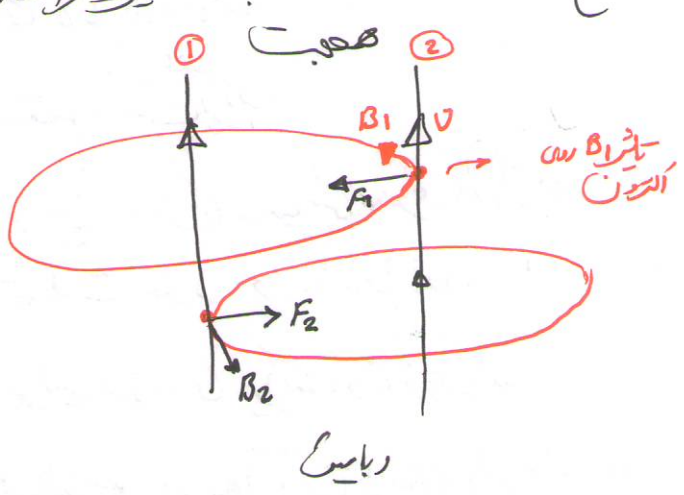 هم‌جهت
① ②
B1 U
F1
تاثیر B1 روی
الکترون
F2
B2
ربایش